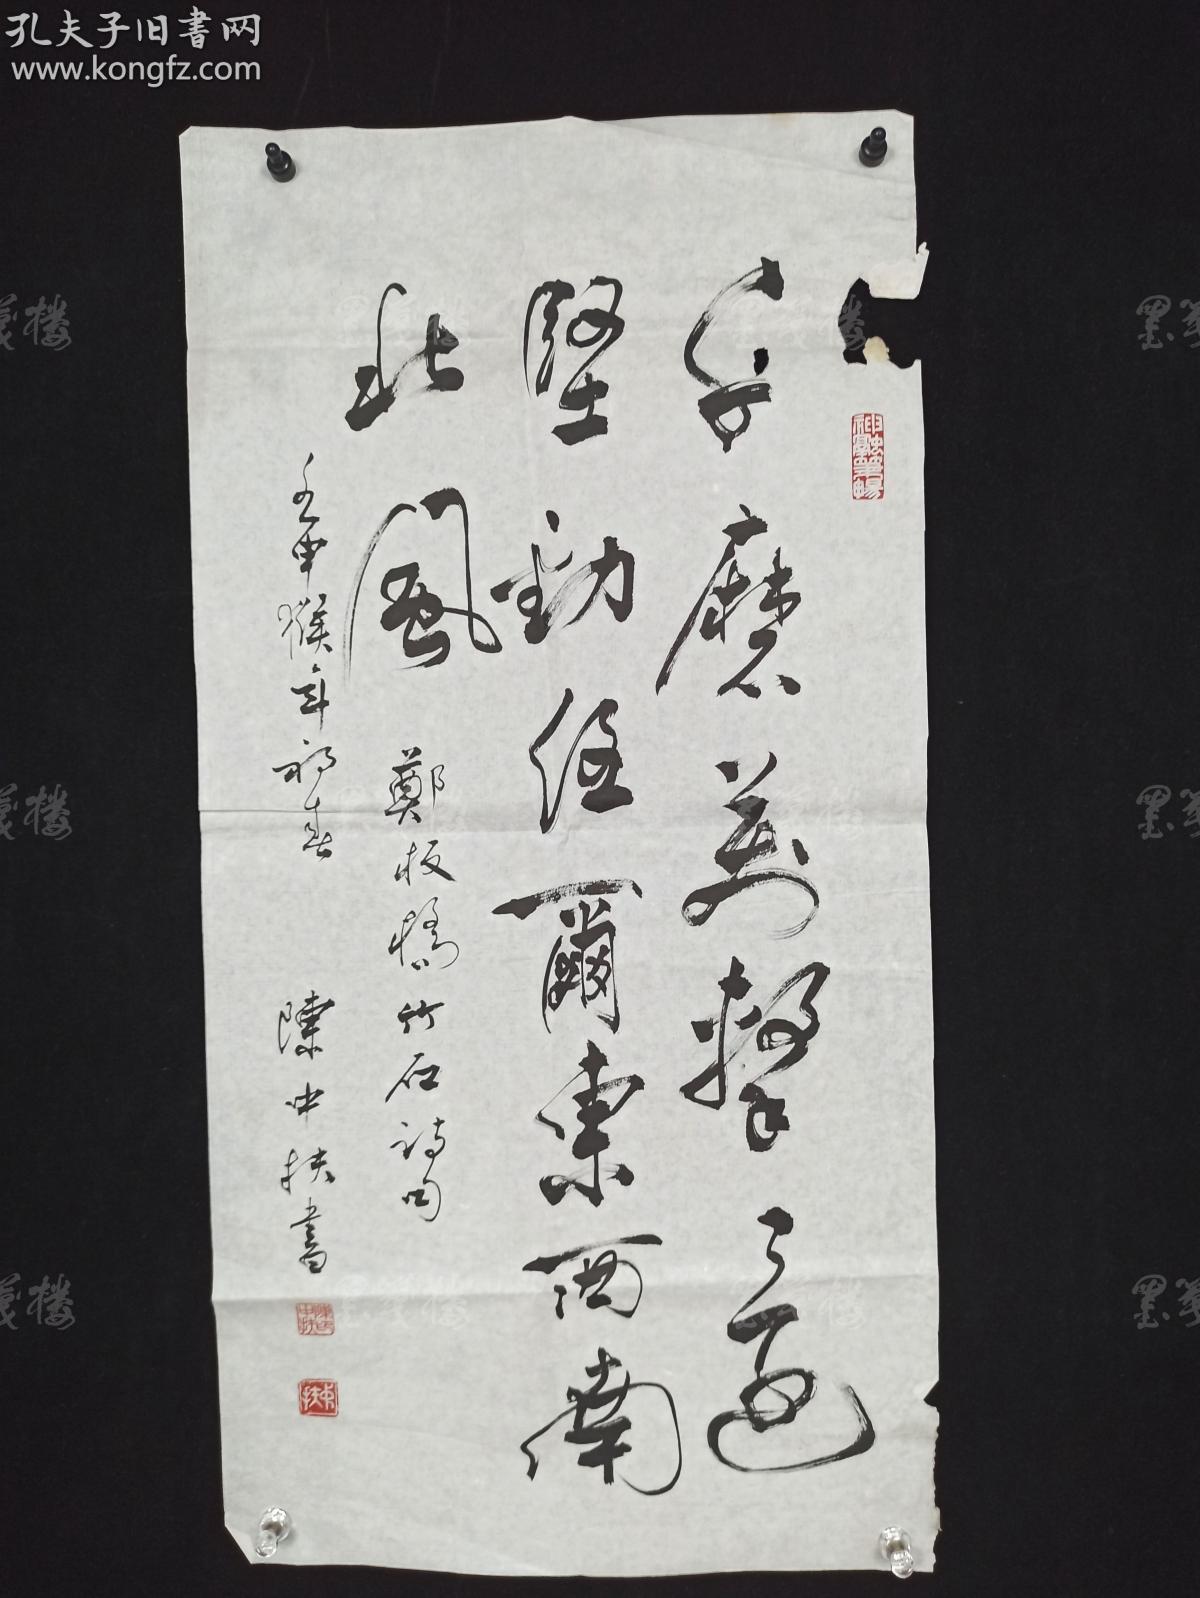 孔夫子旧書网
www.kongfz.com
千磨萬擊還
堅勁任爾東西南
北風
鄭板橋竹石詩句
壬申猴年初春 陳中扶書
神融筆暢